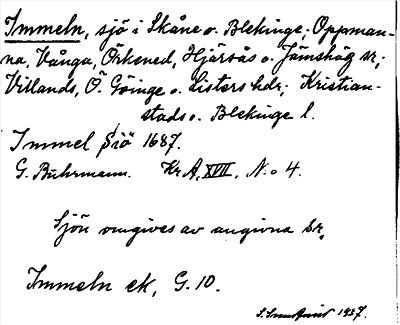 Immeln, sjö i Skåne o. Blekinge; Oppman-
na, Vånga, Örkened, Hjärsås o. Jämshög sr;
Villands, Ö Göinge o. Listers hdr; Kristian-
stads o. Blekinge l.
Immel Siö 1687.
G. Buhrmann. Kr A, XVII, N:o 4.
Sjön omgives av angivna sr.
Immeln ek, G. 10.
1927.